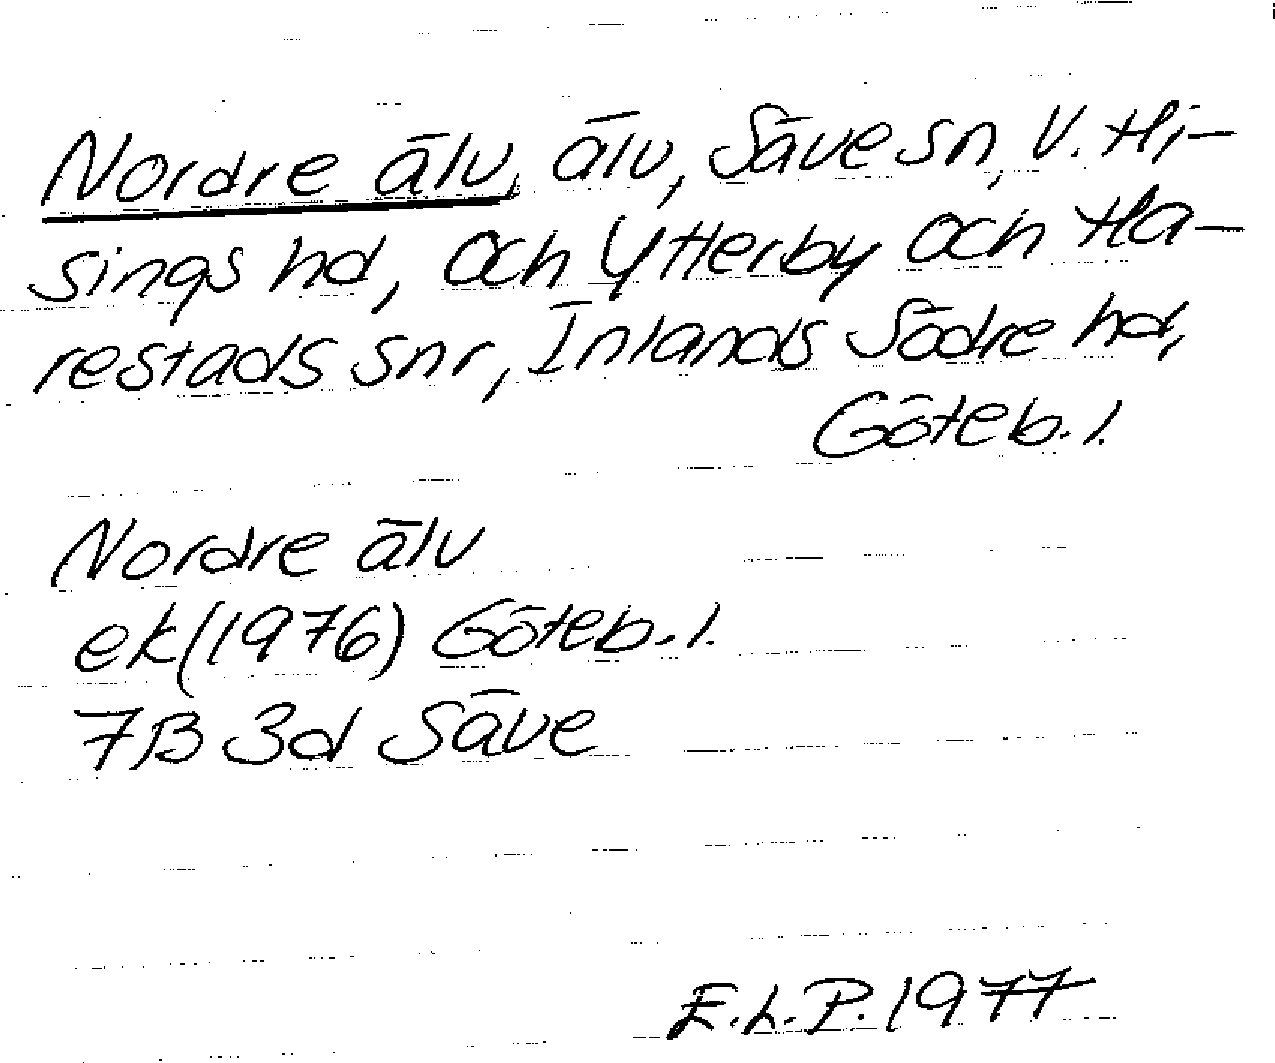 Nordre älv, älv, Säve sn, V. Hi-
sings hd, och Ytterby och Ha-
restads snr, Inlands Södre hd,
Göteb. l.
Nordre älv
ek (1976) Göteb. l.
7B 3d Säve
E.L.P. 1977